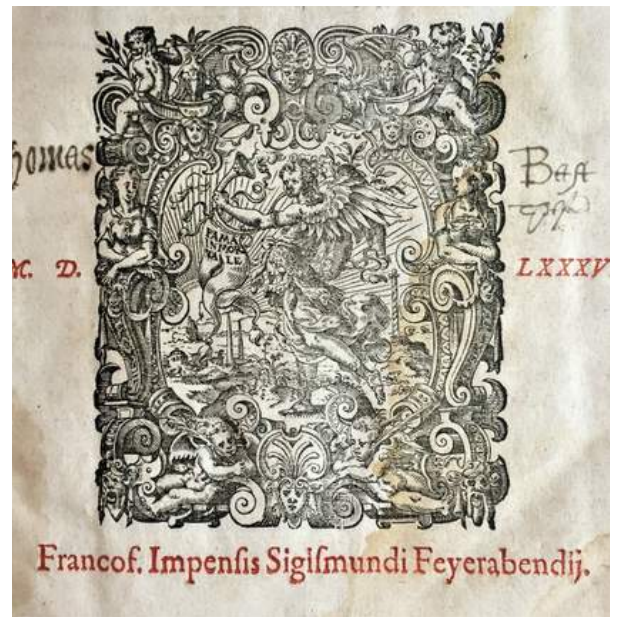 homas Bast
FAMA
IMMOR
TALE
M. D. LXXXV
Francof. Impenſis Sigiſmundi Feyerabendij.